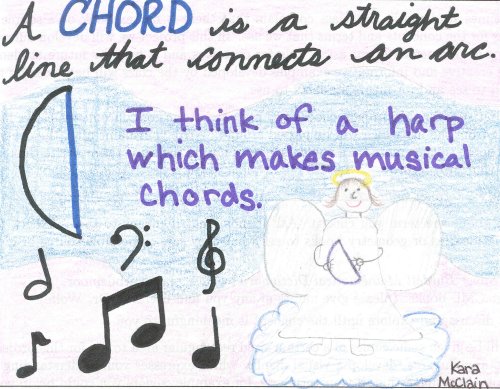 A CHORD is a straight
line that connects an arc.
I think of a harp
which makes musical
chords.
Kara
McClain